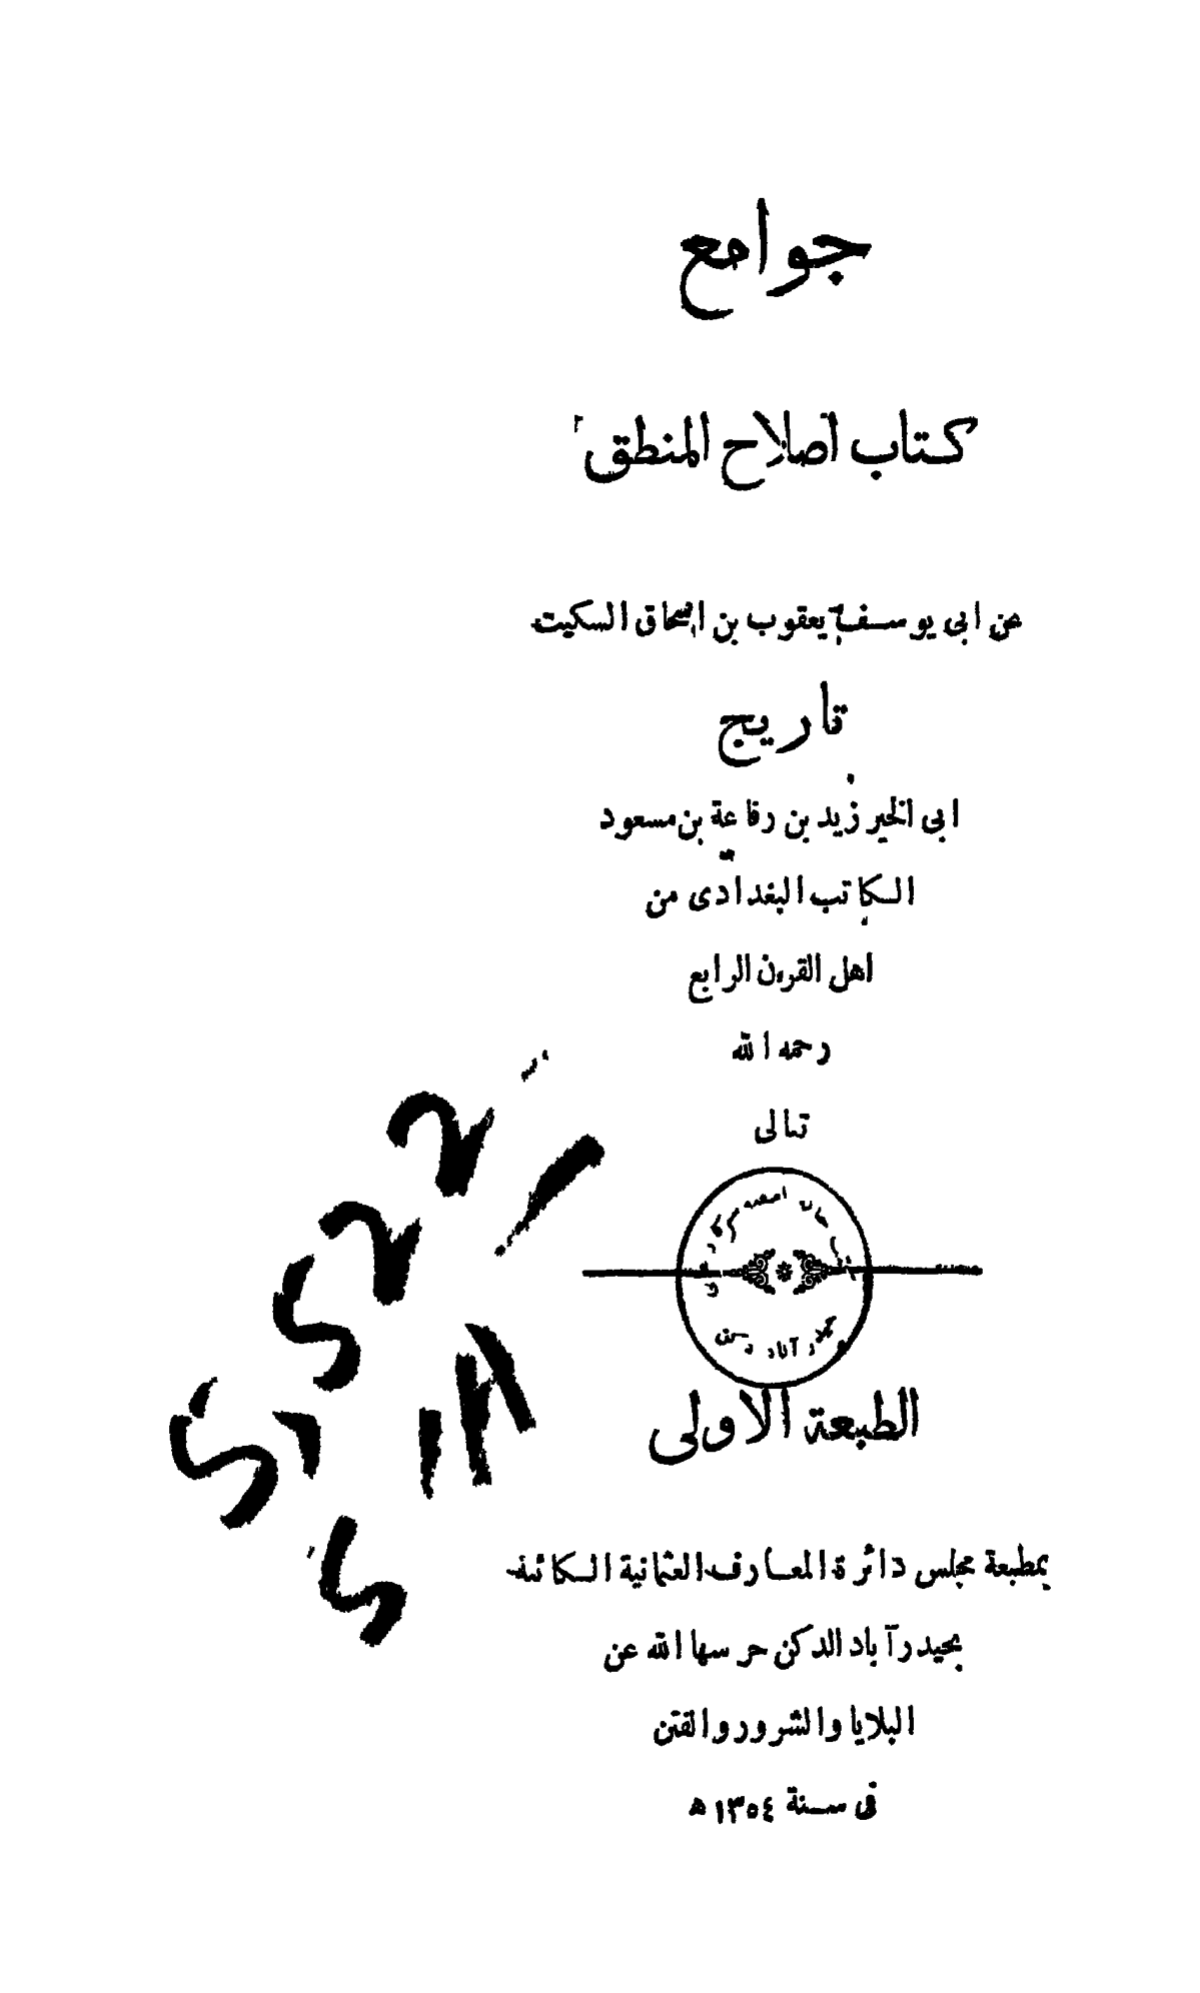 جوامع
كتاب اصلاح المنطق
عن ابى يوسف يعقوب بن اسحاق السكيت
تاريج
ابى الخير زيد بن رفاعة بن مسعود
الكاتب البغدادى من
اهل القرن الرابع
رحمه الله
تعالى
حيدرآباد دكن
الطبعة الاولى
بمطبعة مجلس دائرة المعارف العثمانية الكائنة
بحيدرآباد الدكن حرسها الله عن
البلايا والشرور والفتن
فى سنة ١٣٥٤ ه